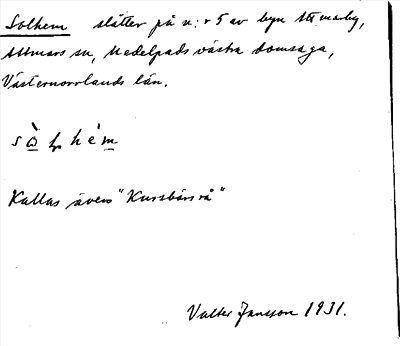 Solhem slåtter på n:r 5 av byn Attmarby,
Attmars sn, Medelpads västra domsaga,
Västernorrlands län.
Kallas även "Kursbärsrå"
Valter Jansson 1931.